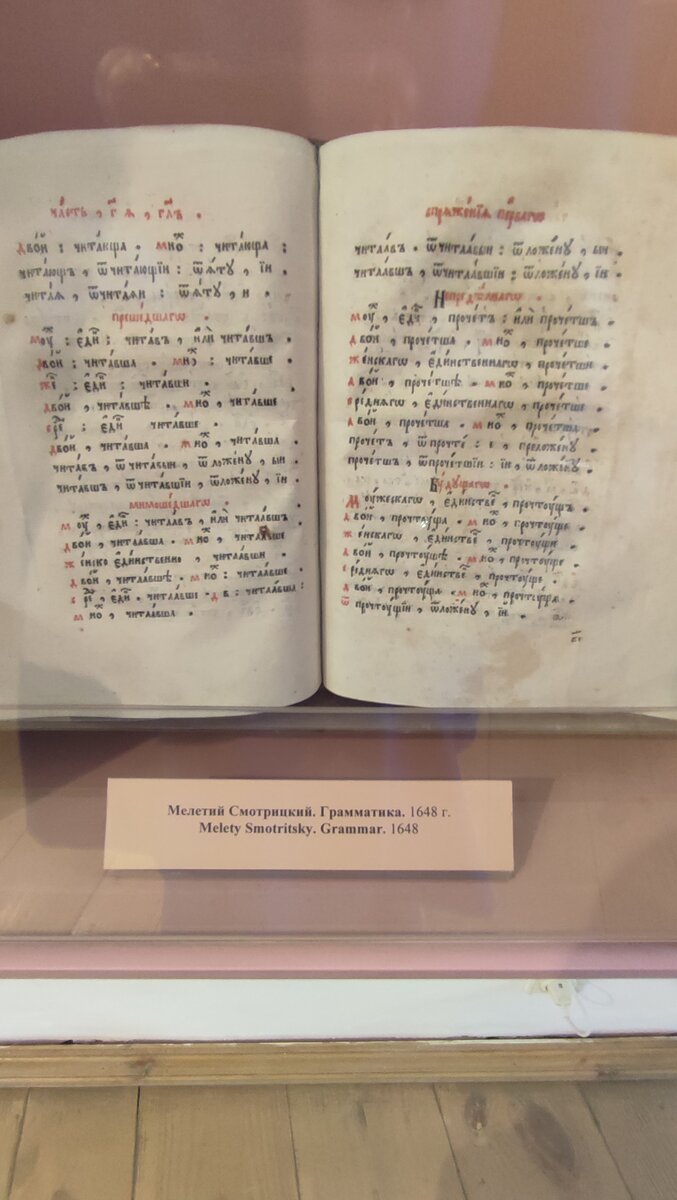 часть, г҃ я, гл҃ъ.
двои : читающа. мно : читающа :
читающъ, ѿ читающїи : ѿяту, їи.
читая, ѿ читаяи : ѿяту, и.
прешедшагѡ.
моу : еди : читавъ, или читавшъ.
двои : читавша. мно : читавше.
же : еди : читавши.
двои, читавшѣ. мно, читавше
сре : еди читавше.
двои, читавша. мно, читавша
читавъ, ѿ читавыи, ѿложену, ыи.
читавшъ, ѿ читавшїи, ѿложену, їи.
мимошедшагѡ.
моу, еди : читаавъ, или читаавшъ
двои, читаавша. мно, читаавше
женско единственно, читаавши
двои, читаавшѣ. мно : читаавше
сре, еди. читаавше. дв : читаавша :
мно, читаавша.
спряженїя перваго
читаавъ. ѿ читаавыи : ѿложену, ыи.
читаавшъ, ѿ читаавшїи : ѿложену, їи.
Непредѣлнагѡ.
моу, еди, прочетъ : или прочетшъ
двои, прочетша. мно, прочетше
женскагѡ, единственнагѡ, прочетши
двои, прочетшѣ. мно, прочетше
среднягѡ, единственнагѡ, прочетше
двои, прочетша. мно, прочетша
прочетъ, ѿ прочте : е, преложену.
прочетшъ, ѿ прочетшїи : їи, ѿложену.
Будущагѡ.
Моужескагѡ, единстве, прочтоущъ.
двои, прочтоуща. мно, прочтоуще
женскагѡ, единстве, прочтоущи
двои, прочтоущѣ. мно, прочтоуще
среднягѡ, единстве, прочтоуще
двои, прочтоуща. мно, прочтоуща
ѿ прочтоущїи, ѿложену, їи.
Мелетий Смотрицкий. Грамматика. 1648 г.
Melety Smotritsky. Grammar. 1648